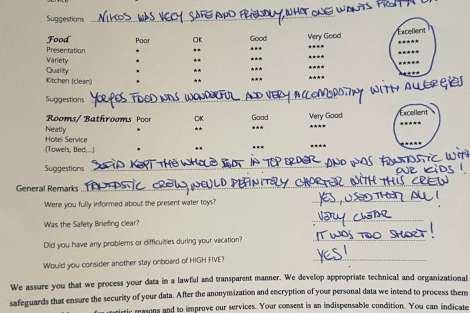 Suggestions NIKOS WAS VERY SAFE AND FRIENDLY, WHAT ONE WANTS FROM A
Food Poor OK Good Very Good Excellent
Presentation * ** *** **** *****
Variety * ** *** **** *****
Quality * ** *** **** *****
Kitchen (clean) * ** *** **** *****
Suggestions FOOD WAS WONDERFUL AND VERY ACCOMODATING WITH ALLERGIES
Rooms/ Bathrooms Poor OK Good Very Good Excellent
Neatly * ** *** **** *****
Hotel Service
(Towels, Bed,..) * ** *** **** *****
Suggestions KEPT THE WHOLE BOAT IN TOP ORDER AND WAS FANTASTIC WITH
OUR KIDS!
General Remarks FANTASTIC CREW, WOULD DEFINITELY CHARTER WITH THIS CREW
Were you fully informed about the present water toys? YES, USED THEM ALL!
Was the Safety Briefing clear? VERY CLEAR
Did you have any problems or difficulties during your vacation? IT WAS TOO SHORT!
Would you consider another stay onboard of HIGH FIVE? YES!
We assure you that we process your data in a lawful and transparent manner. We develop appropriate technical and organizational
safeguards that ensure the security of your data. After the anonymization and encryption of your personal data we intend to process them
for statistic reasons and to improve our services. Your consent is an indispensable condition. You can indicate